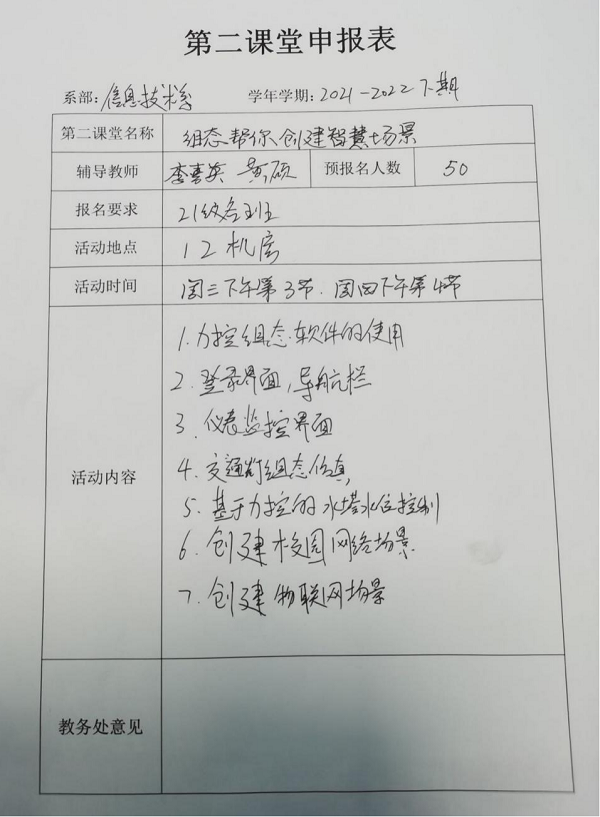 第二课堂申报表
系部：信息技术系 学年学期：2021-2022下期
第二课堂名称 组态帮你创建智慧场景
辅导教师 李喜英 黄硕 预报名人数 50
报名要求 21级各班
活动地点 12机房
活动时间 周三下午第3节.周四下午第4节
活动内容
1.力控组态软件的使用
2.登录界面,导航栏
3.仪表监控界面
4.交通灯组态仿真,
5.基于力控的水塔水位控制
6.创建校园网络场景.
7.创建物联网场景
教务处意见